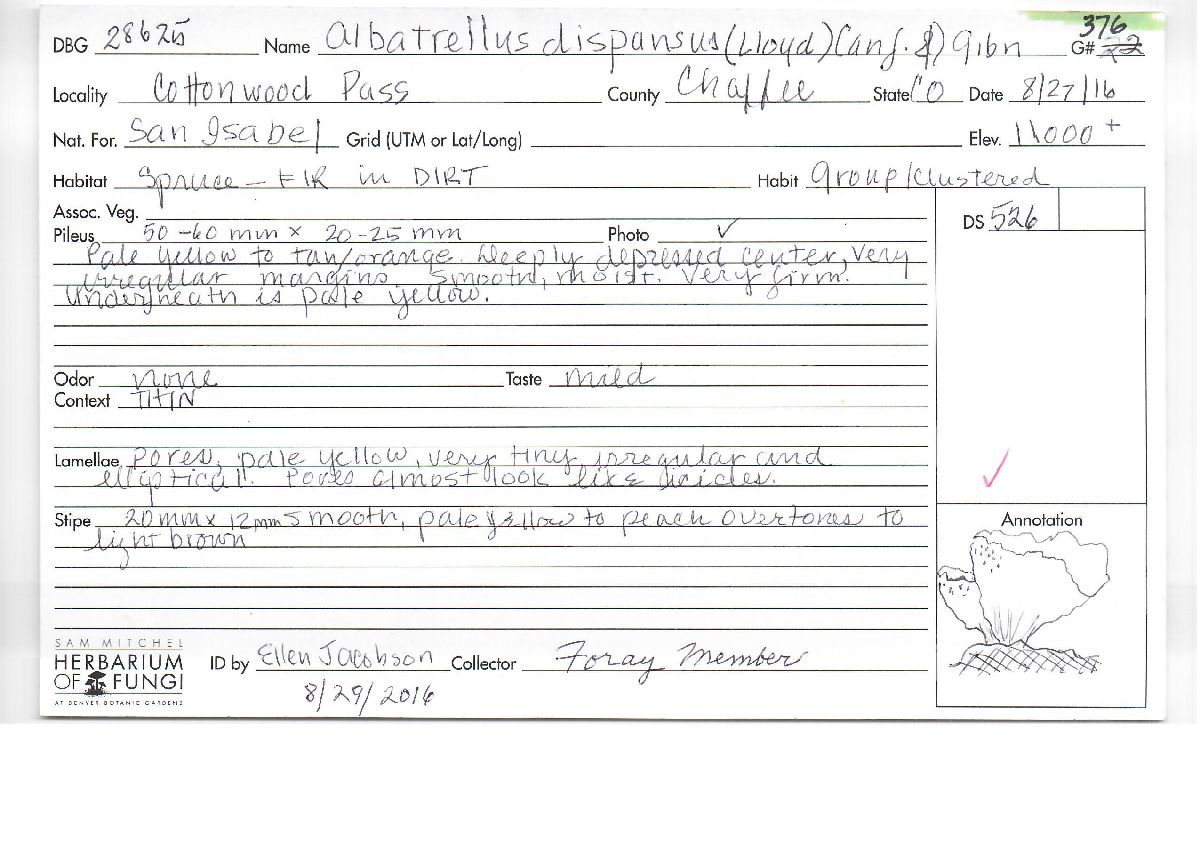 376
DBG 28625 Name Albatrellus dispansus (Lloyd) Canf. & Gibn G# 22
Locality Cottonwood Pass County Chaffee State CO Date 8/27/16
Nat. For. San Isabel Grid (UTM or Lat/Long) Elev. 11000 +
Habitat Spruce - FIR in DIRT Habit Group/clustered
Assoc. Veg. DS 526
Pileus 50-60 mm x 20-25 mm Photo ✓
Pale yellow to tan/orange. Deeply depressed center, Very
irregular margins. Smooth, moist. Very firm.
Underneath is pale yellow.
Odor none Taste mild
Context THIN
Lamellae Pores, pale yellow, very tiny, irregular and
elliptical. Pores almost look like icicles.
Stipe 20mm x 12mm smooth, pale yellow to peach overtones to
light brown
Annotation
SAM MITCHEL
HERBARIUM
OF FUNGI
AT DENVER BOTANIC GARDENS
ID by Ellen Jacobson Collector Foray Member
8/29/2016